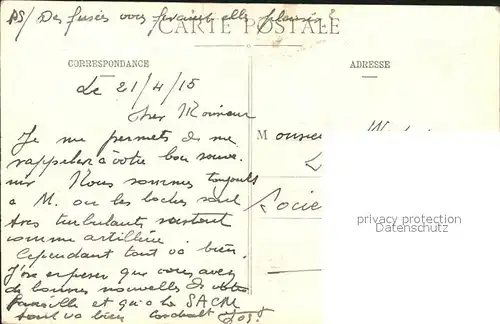 PS/ Des fusées vous feraient elles plaisir?
CARTE POSTALE
CORRESPONDANCE
ADRESSE
Le 21/4/15
Cher Monsieur
Je me permets de me
rappeler à votre bon souve-
nir Nous sommes toujours
à M. où les boches sont
très turbulents surtout
comme artillerie.
Cependant tout va bien.
J'ose espérer que vous avez
de bonnes nouvelles de votre
famille et qu'à la SACM
tout va bien
Monsieur
Socié
privacy protection
www.ansichtskarten-center.de